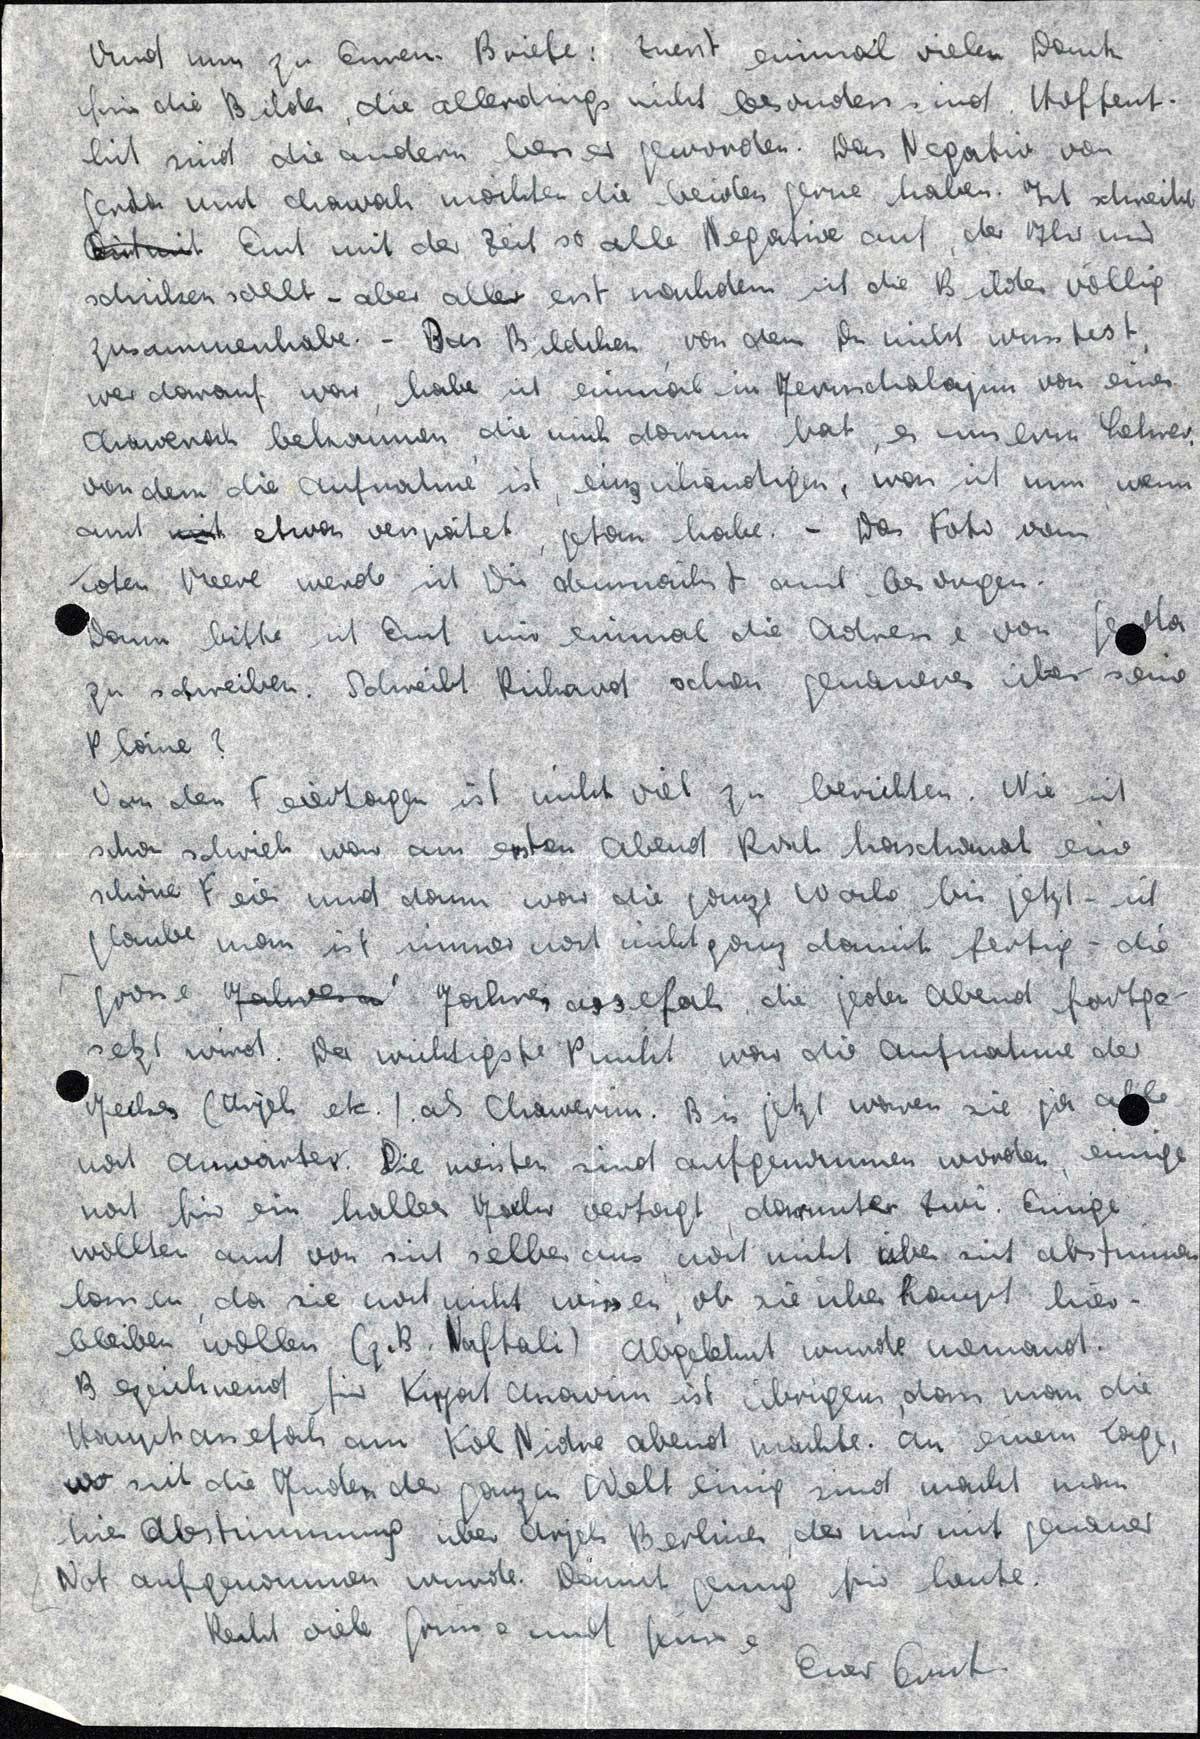 Und nun zu Eurem Briefe: Zuerst einmal vielen Dank
für die Bilder, die allerdings nicht besonders sind. Hoffent-
lich sind die andern besser geworden. Das Negativ von
Gerda und Chawah möchten die beiden gerne haben. Ich schreibe
Euch mit der Zeit so alle Negative auf, der Ihr mir
schicken sollt - aber aller erst nachdem ich die Bilder völlig
zusammenhabe. - Das Bildchen, von dem Du nicht wusstest,
wer darauf war, habe ich einmal in Jeruschalajim von einer
Chaweroh bekommen, die mich darum bat, es unserm Lehrer,
von dem die Aufnahme ist, einzuhändigen, was ich nun, wenn
auch etwas verspätet, getan habe. - Das Foto vom
toten Meere werde ich Dir demnächst auch besorgen.
Dann bitte ich Euch mir einmal die Adresse von Gerda
zu schreiben. Schreibt Richard schon genaueres über seine
Pläne?
Von den Feiertagen ist nicht viel zu berichten. Wie ich
schon schrieb war am ersten Abend Rosch haschanah eine
schöne Feier und dann war die ganze Woche bis jetzt - ich
glaube man ist immer noch nicht ganz damit fertig - die
grosse Jahresassefah, die jeden Abend fortge-
setzt wird. Der wichtigste Punkt war die Aufnahme der
Jeckes (Arjeh etc.) als Chawerim. Bis jetzt waren sie ja alle
noch Anwärter. Die meisten sind aufgenommen worden, einige
noch für ein halbes Jahr vertagt, darunter Zwi. Einige
wollten auch von sich selber aus noch nicht über sich abstimmen
lassen, da sie noch nicht wissen, ob sie überhaupt hier-
bleiben wollen (z.B. Naftali) Abgelehnt wurde niemand.
Bezeichnend für Kirjat Anawim ist übrigens, dass man die
Hauptassefah am Kol Nidre abend machte. An einem Tage,
wo sich die Juden der ganzen Welt einig sind, macht man
hier Abstimmung über Arjeh Berliner, der nur mit genauer
Not aufgenommen wurde. Damit genug für heute.
Recht viele Grüsse und Küsse
Euer Ernst